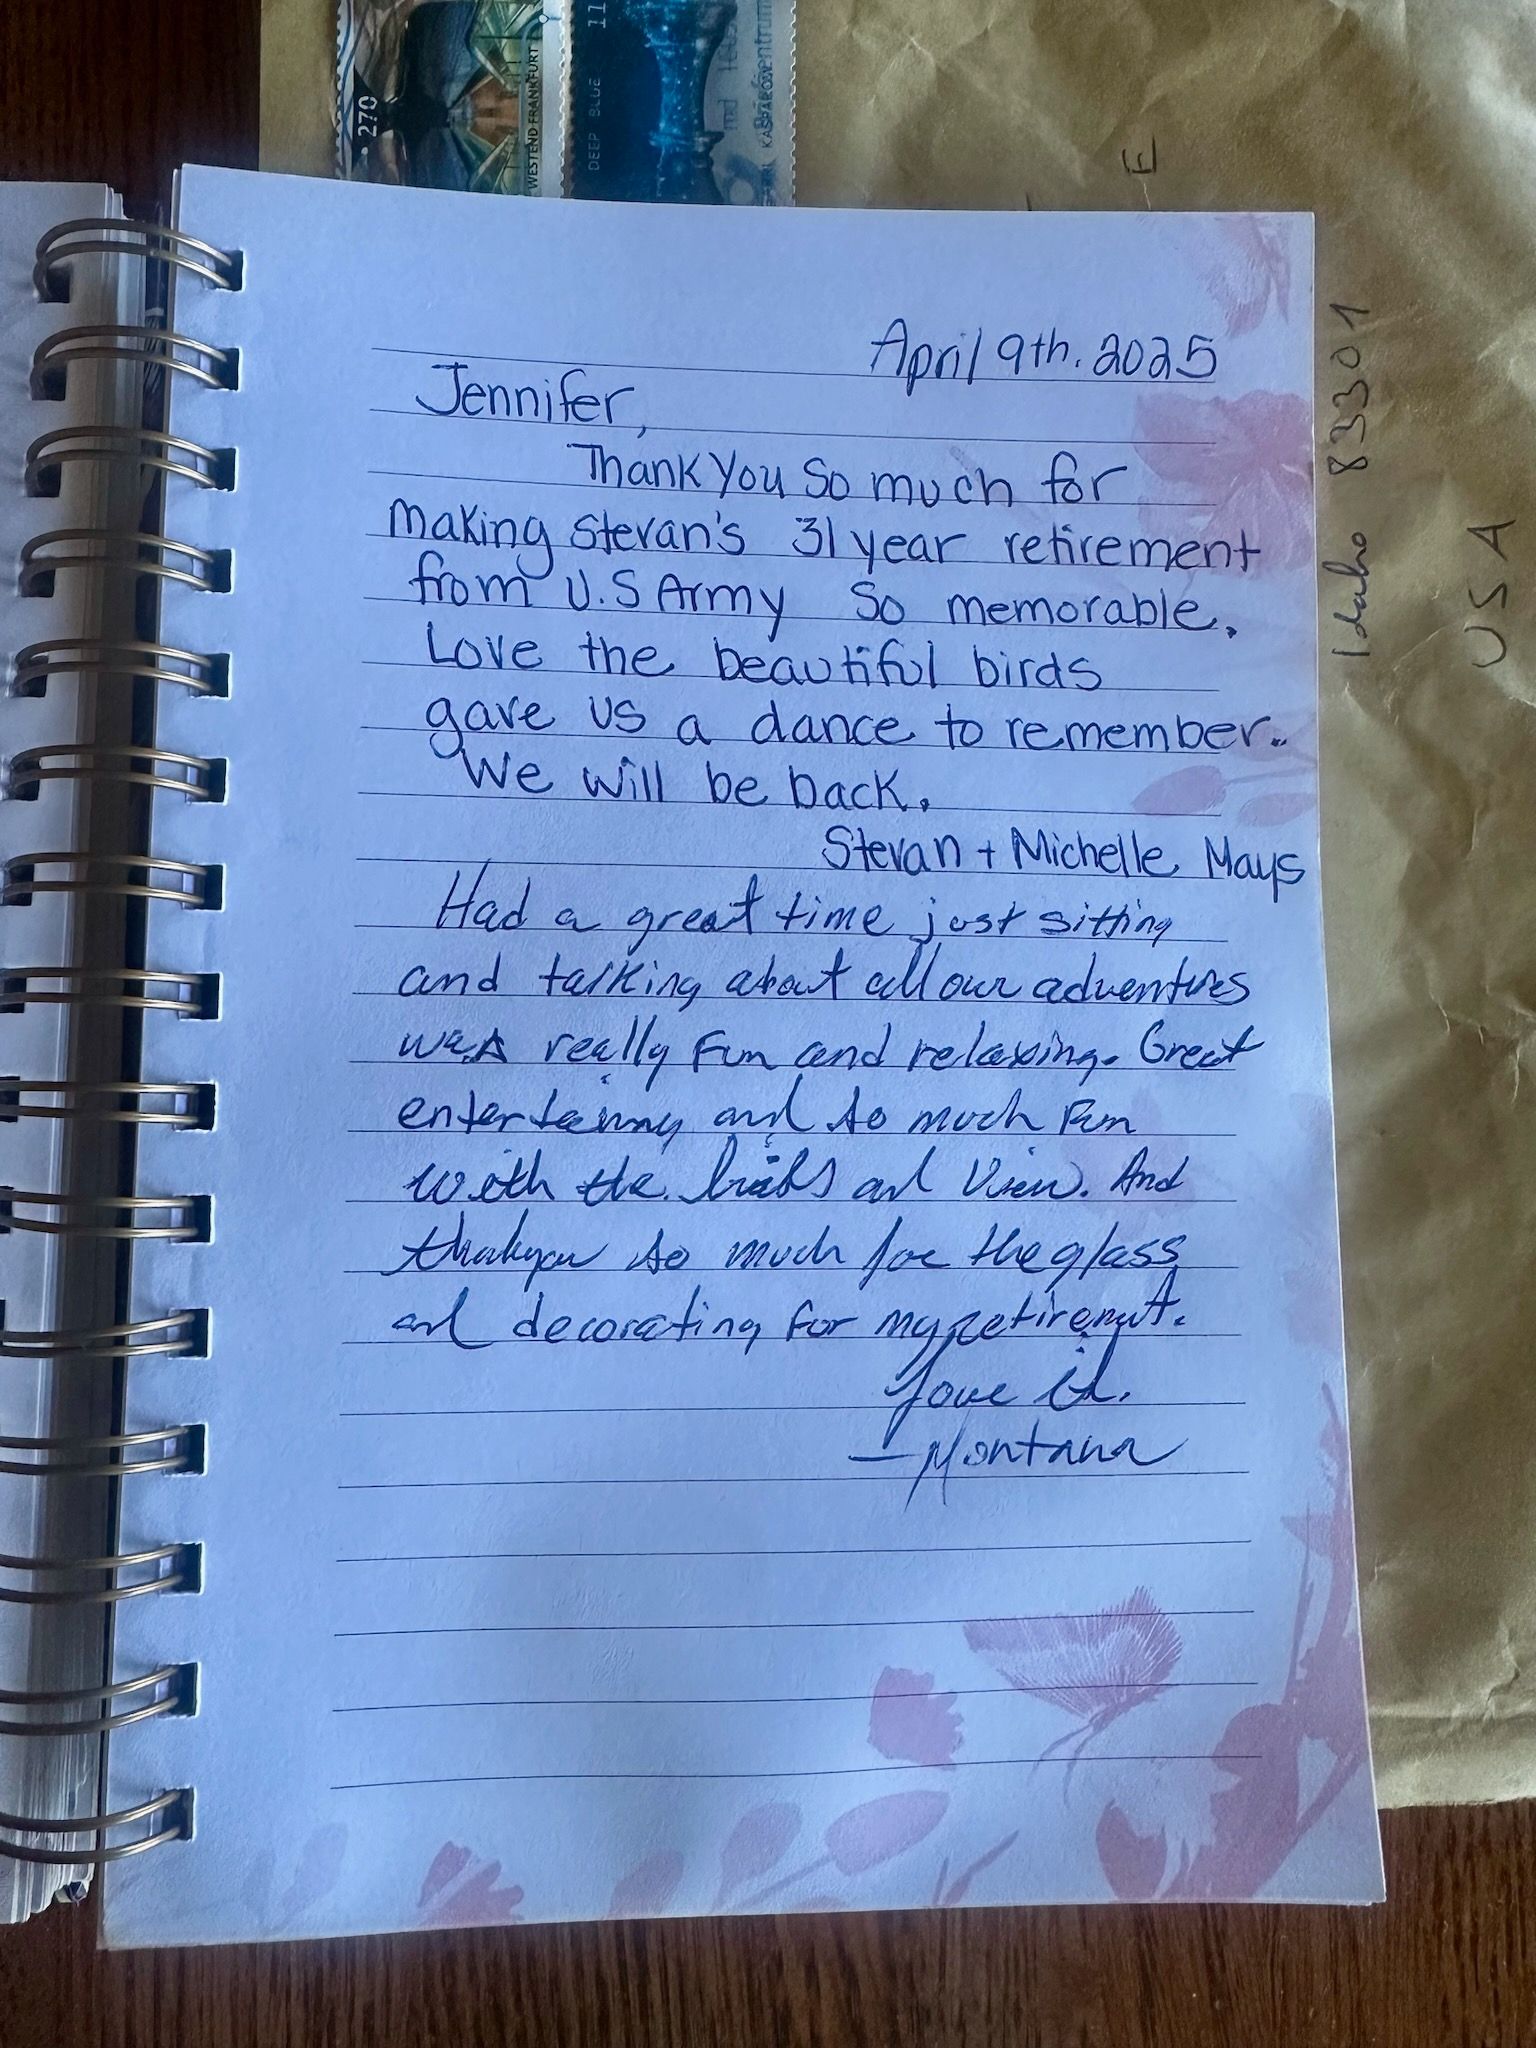 270
WESTEND FRANKFURT
DEEP BLUE
11
KASPAROW
E
Idaho 83301
USA
April 9th. 2025
Jennifer,
Thank You So much for
making Stevan's 31 year retirement
from U.S Army So memorable.
Love the beautiful birds
gave us a dance to remember.
We will be back.
Stevan + Michelle Mays
Had a great time just sitting
and talking about all our adventures
was really Fun and relaxing. Great
entertaining and so much Fun
with the birds and View. And
thankyou so much for the glass
and decorating for my retirement.
Love it.
- Montana